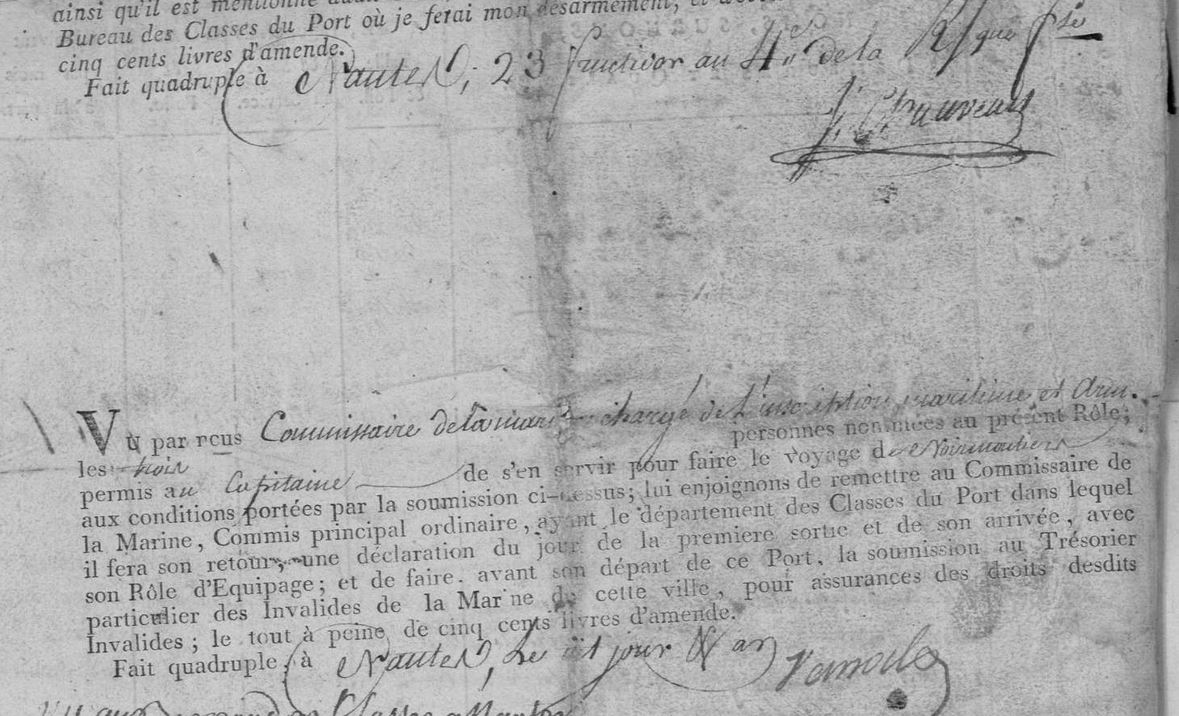 ainsi qu'il est mentionné
Bureau des Classes du Port où je ferai mon désarmement,
cinq cents livres d'amende.
Fait quadruple à Nantes, 23 fructidor an 4.e de la Rque fse
J. Chauveau
Vu par nous Commissaire de la marine chargé de L'inscription maritime et Arm.
les trois personnes nommées au présent Rôle;
permis au Capitaine de s'en servir pour faire le voyage de Noirmoutiers
aux conditions portées par la soumission ci-dessus; lui enjoignons de remettre au Commissaire de
la Marine, Commis principal ordinaire, ayant le département des Classes du Port dans lequel
il fera son retour, une déclaration du jour de la premiere sortie et de son arrivée, avec
son Rôle d'Equipage; et de faire, avant son départ de ce Port, la soumission au Trésorier
particulier des Invalides de la Marine de cette ville, pour assurances des droits desdits
Invalides; le tout à peine de cinq cents livres d'amende.
Fait quadruple, à Nantes, Le dit jour & an